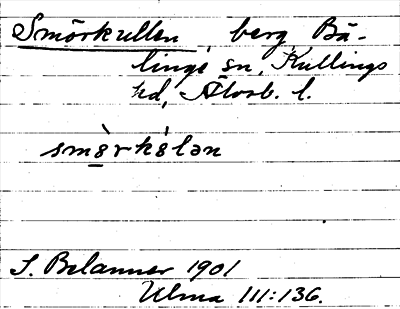 Smörkullen, berg Bä-
linge sn, Kullings
hd, Älvsb. l.
smö̀rkúlən
S. Belanner 1901
Ulma 111:136.